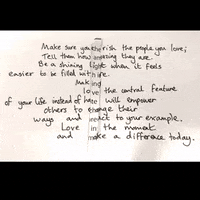 Make sure you cherish the people you love;
Tell them how amazing they are.
Be a shining light when it feels
easier to be filled with
love the central feature
of your life instead of hate will empower
others to change their
ways and react to your example.
Love in the moment
and make a difference today.